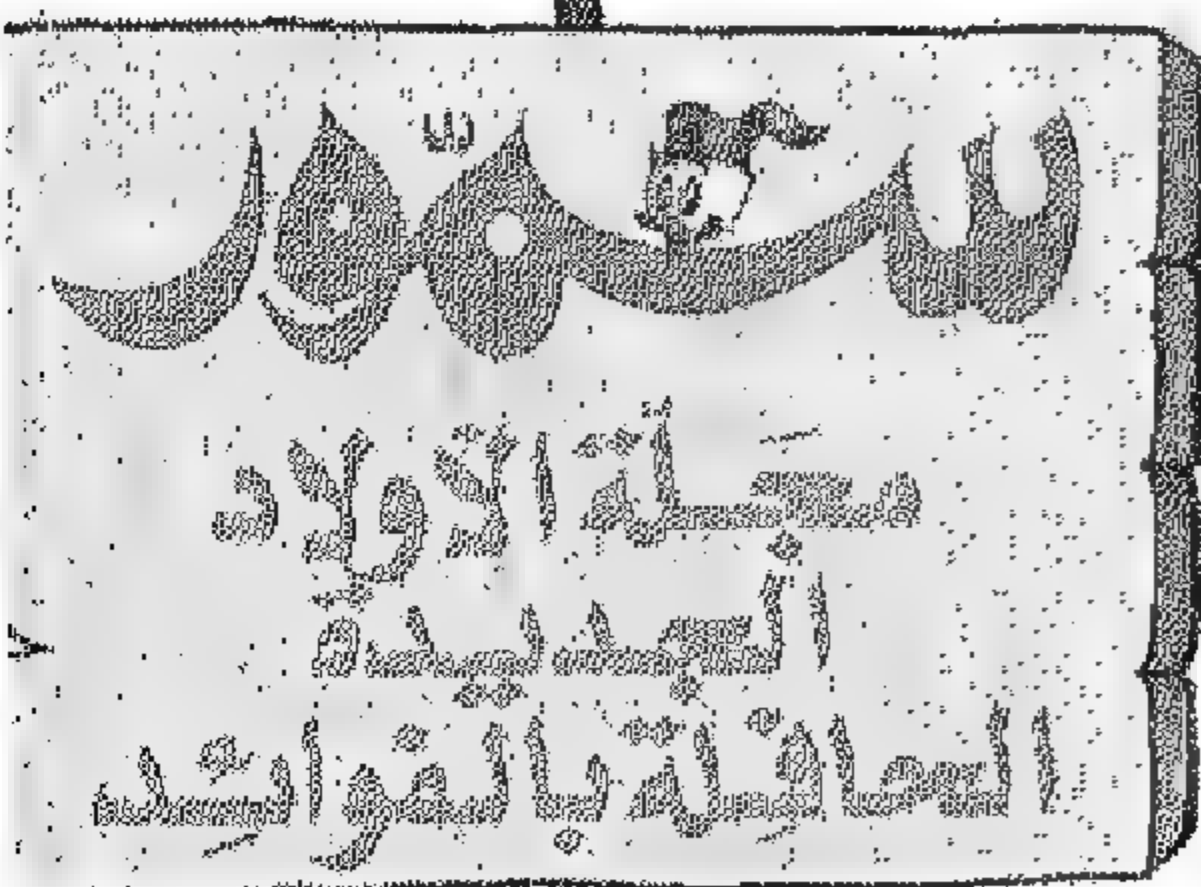 مجلة الأولاد
الجديدة
الحافلة بالغرائب